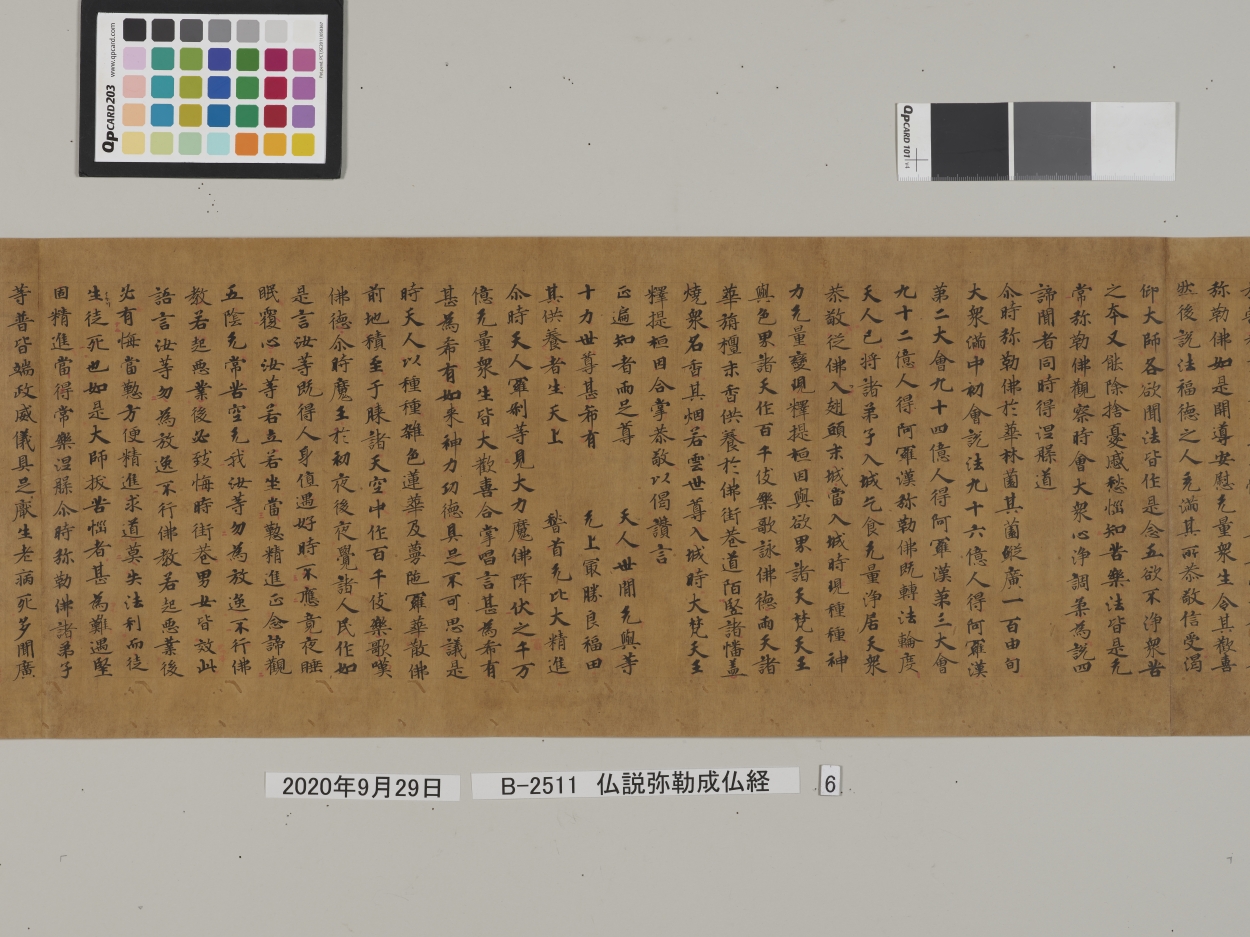 QPCARD 203
www.qpcard.com
QPCARD 101
弥勒佛如是開導安慰无量衆生令其歡喜
然後説法福德之人充滿其所恭敬信受渇
仰大師各欲聞法皆作是念五欲不淨衆苦
之本又能除捨憂慼愁惱知苦樂法皆是无
常弥勒佛觀察時會大衆心淨調柔為説四
諦聞者同時得涅槃道
尒時弥勒佛於華林薗其薗縱廣一百由旬
大衆滿中初會説法九十六億人得阿羅漢
第二大會九十四億人得阿羅漢第三大會
九十二億人得阿羅漢弥勒佛既轉法輪度
天人已將諸弟子入城乞食无量淨居天衆
恭敬從佛入翅頭末城當入城時現種種神
力无量變現釋提桓因與欲界諸天梵天王
與色界諸天作百千伎樂歌詠佛德雨天諸
華旃檀末香供養於佛街巷道陌竪諸幡蓋
燒衆名香其烟若雲世尊入城時大梵天王
釋提桓因合掌恭敬以偈讚言
正遍知者兩足尊　天人世間无與等
十力世尊甚希有　无上最勝良福田
其供養者生天上　䭫首无比大精進
尒時天人羅刹等見大力魔佛降伏之千万
億无量衆生皆大歡喜合掌唱言甚為希有
甚為希有如来神力功德具足不可思議是
時天人以種種雜色蓮華及蔓陁羅華散佛
前地積至于膝諸天空中作百千伎樂歌嘆
佛德尒時魔王於初夜後夜覺諸人民作如
是言汝等既得人身值遇好時不應竟夜睡
眠覆心汝等若立若坐當懃精進正念諦觀
五陰无常苦空无我汝等勿為放逸不行佛
教若起悪業後必致悔時街巷男女皆效此
語言汝等勿為放逸不行佛教若起悪業後
必有悔當懃方便精進求道莫失法利而徒
生徒死也如是大師拔苦惱者甚為難遇堅
固精進當得常樂涅槃尒時弥勒佛諸弟子
等普皆端政威儀具足厭生老病死多聞廣
2020年9月29日
B-2511 仏説弥勒成仏経
6